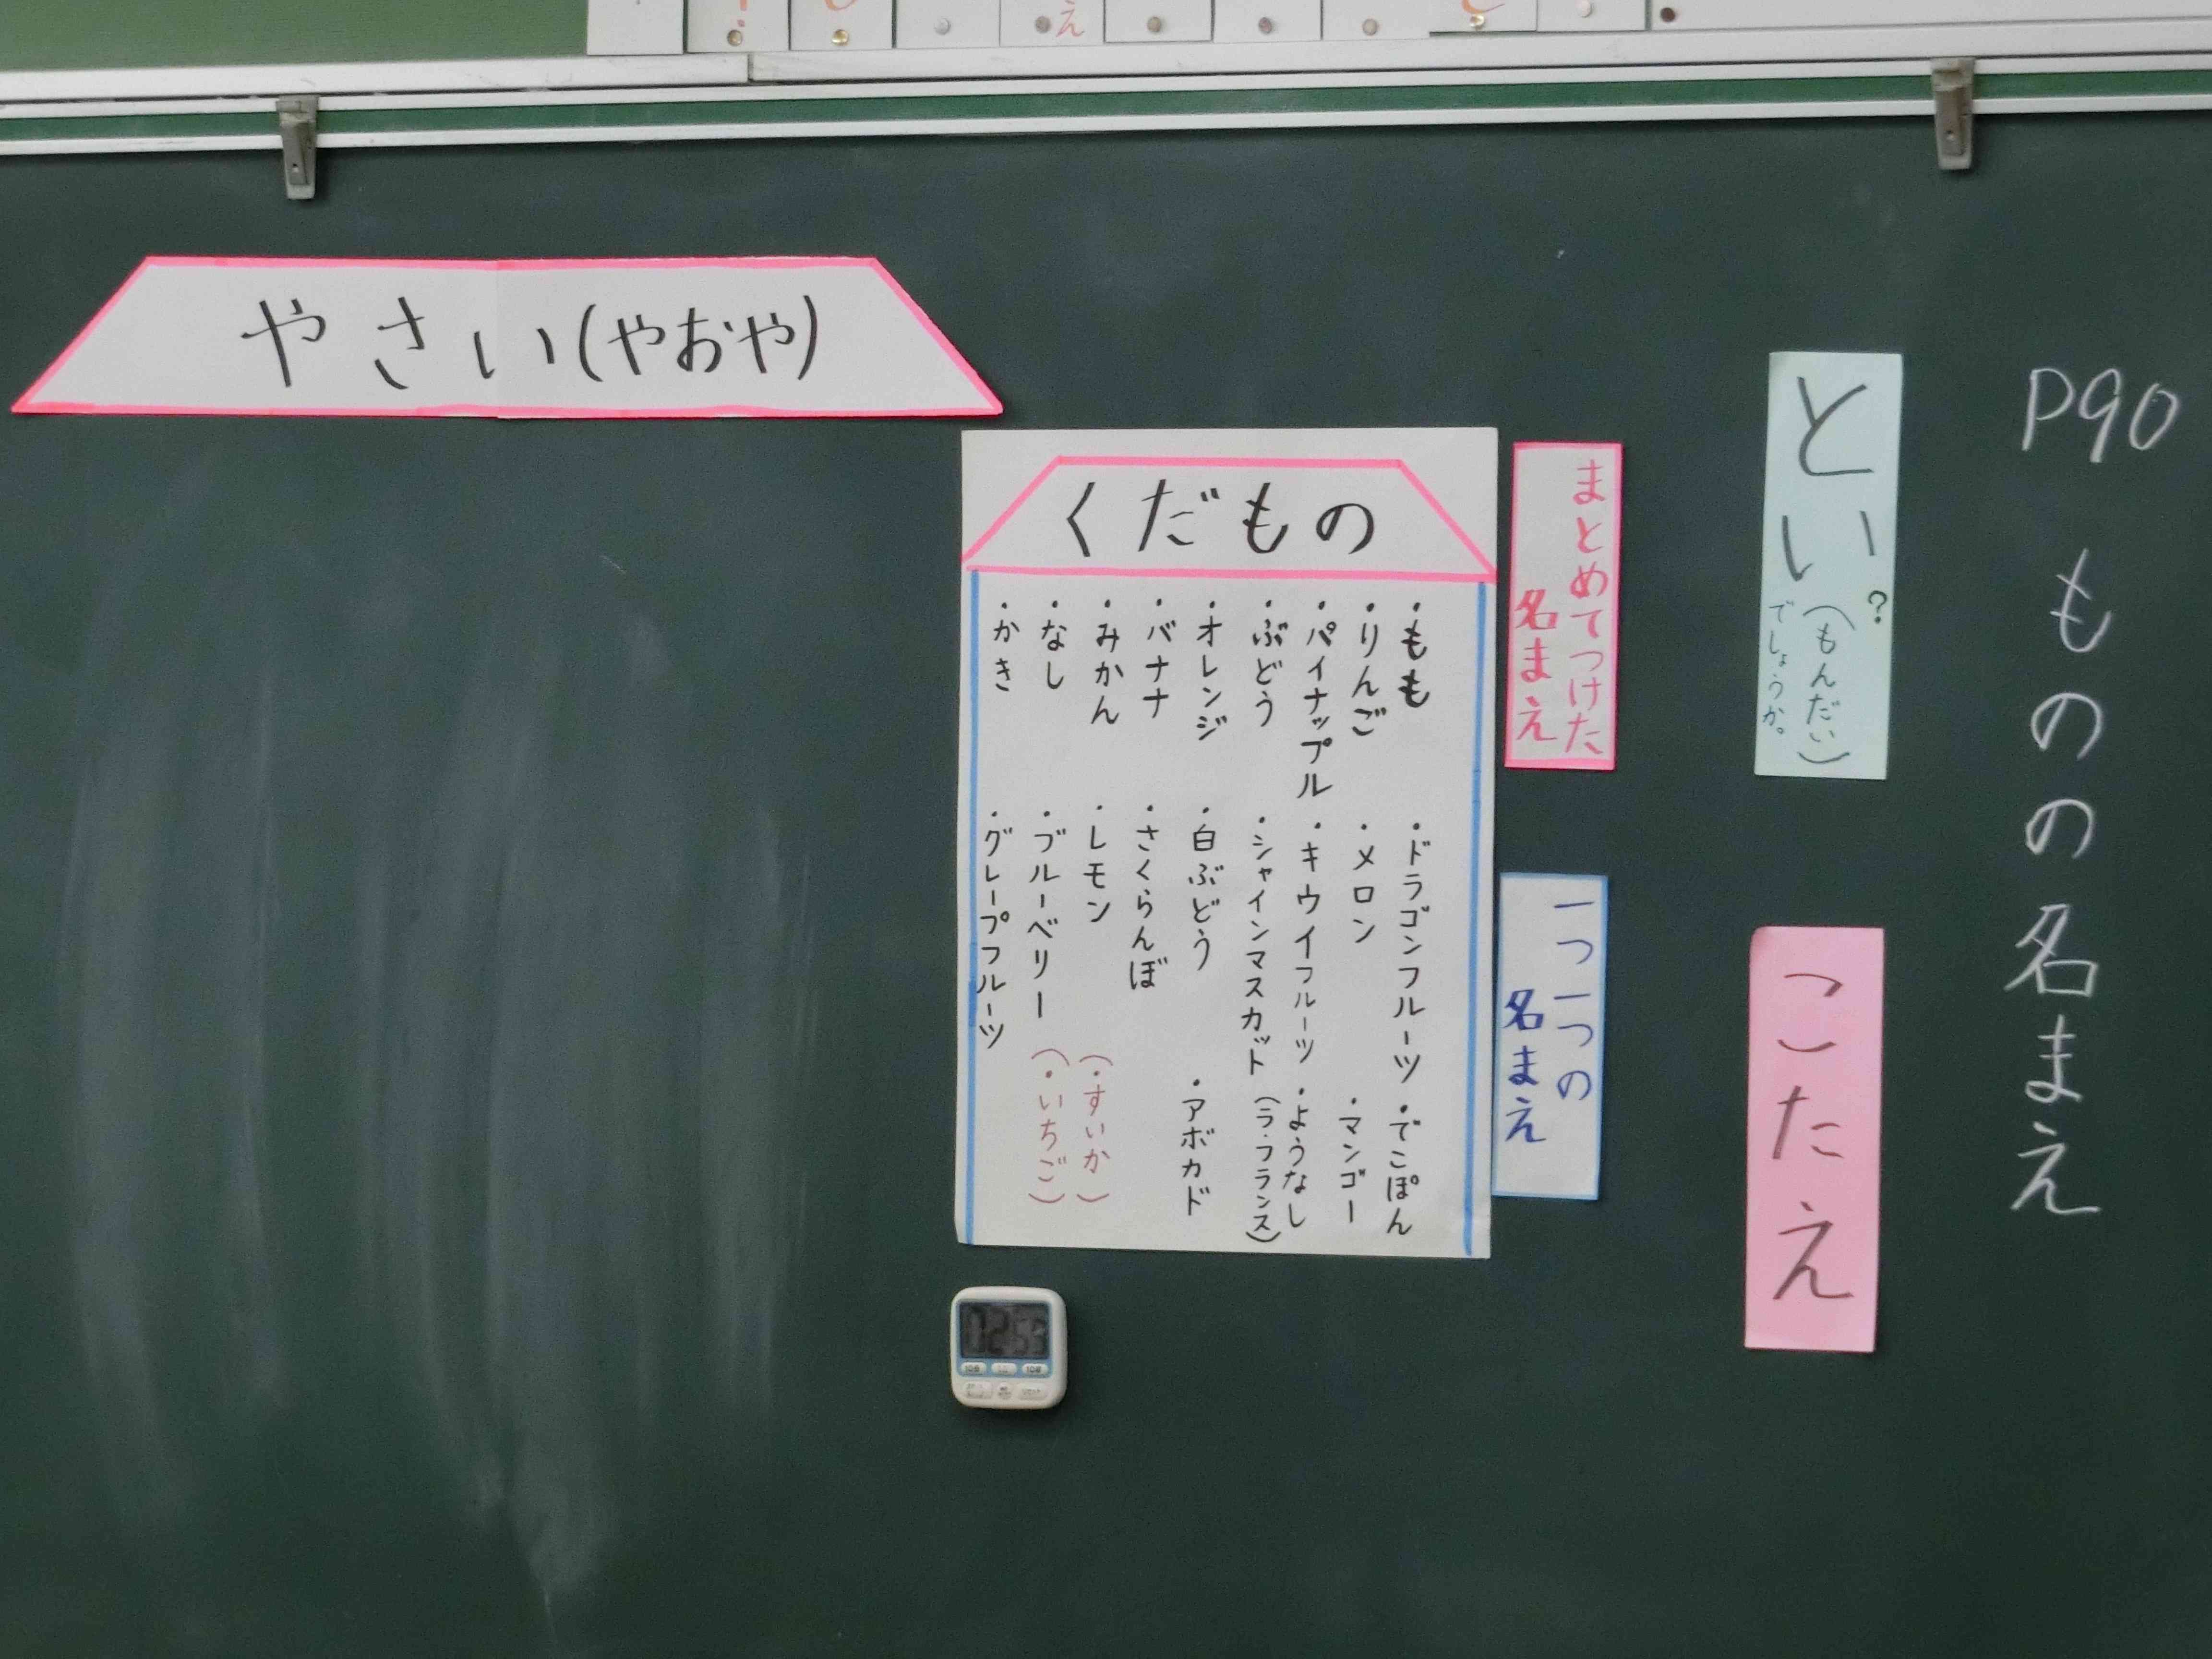 P90 ものの名まえ
とい?
(もんだい)
でしょうか。
こたえ
まとめてつけた
名まえ
一つ一つの
名まえ
くだもの
・もも
・りんご
・パイナップル
・ぶどう
・オレンジ
・バナナ
・みかん
・なし
・かき
・ドラゴンフルーツ
・メロン
・キウイフルーツ
・シャインマスカット
・白ぶどう
・さくらんぼ
・レモン
・ブルーベリー
・グレープフルーツ
・でこぽん
・マンゴー
・ようなし
(ラ・フランス)
・アボカド
(・すいか)
(・いちご)
やさい(やおや)
02 53
え